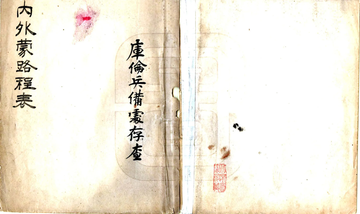 內外蒙路程表
庫倫兵備處存查